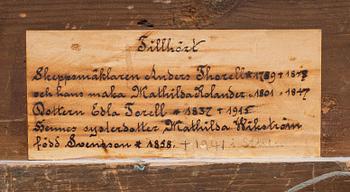 Tillhört
Skeppsmäklaren Anders Thorell * 1789 +
och hans maka Mathilda Kolander * 1801 + 1847
Dottern Edla Torell * 1837 + 1915
Hennes systerdotter Mathilda Wikström
född Svengson * 1858. +